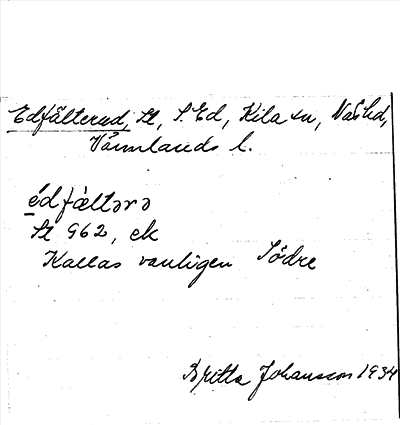 Edfälterud, St, S. Ed, Kila sn, Näs hd,
Värmlands l.
édfæ̀ltərə
St 962, ek
Kallas vanligen Södre
Britta Johansson 1934